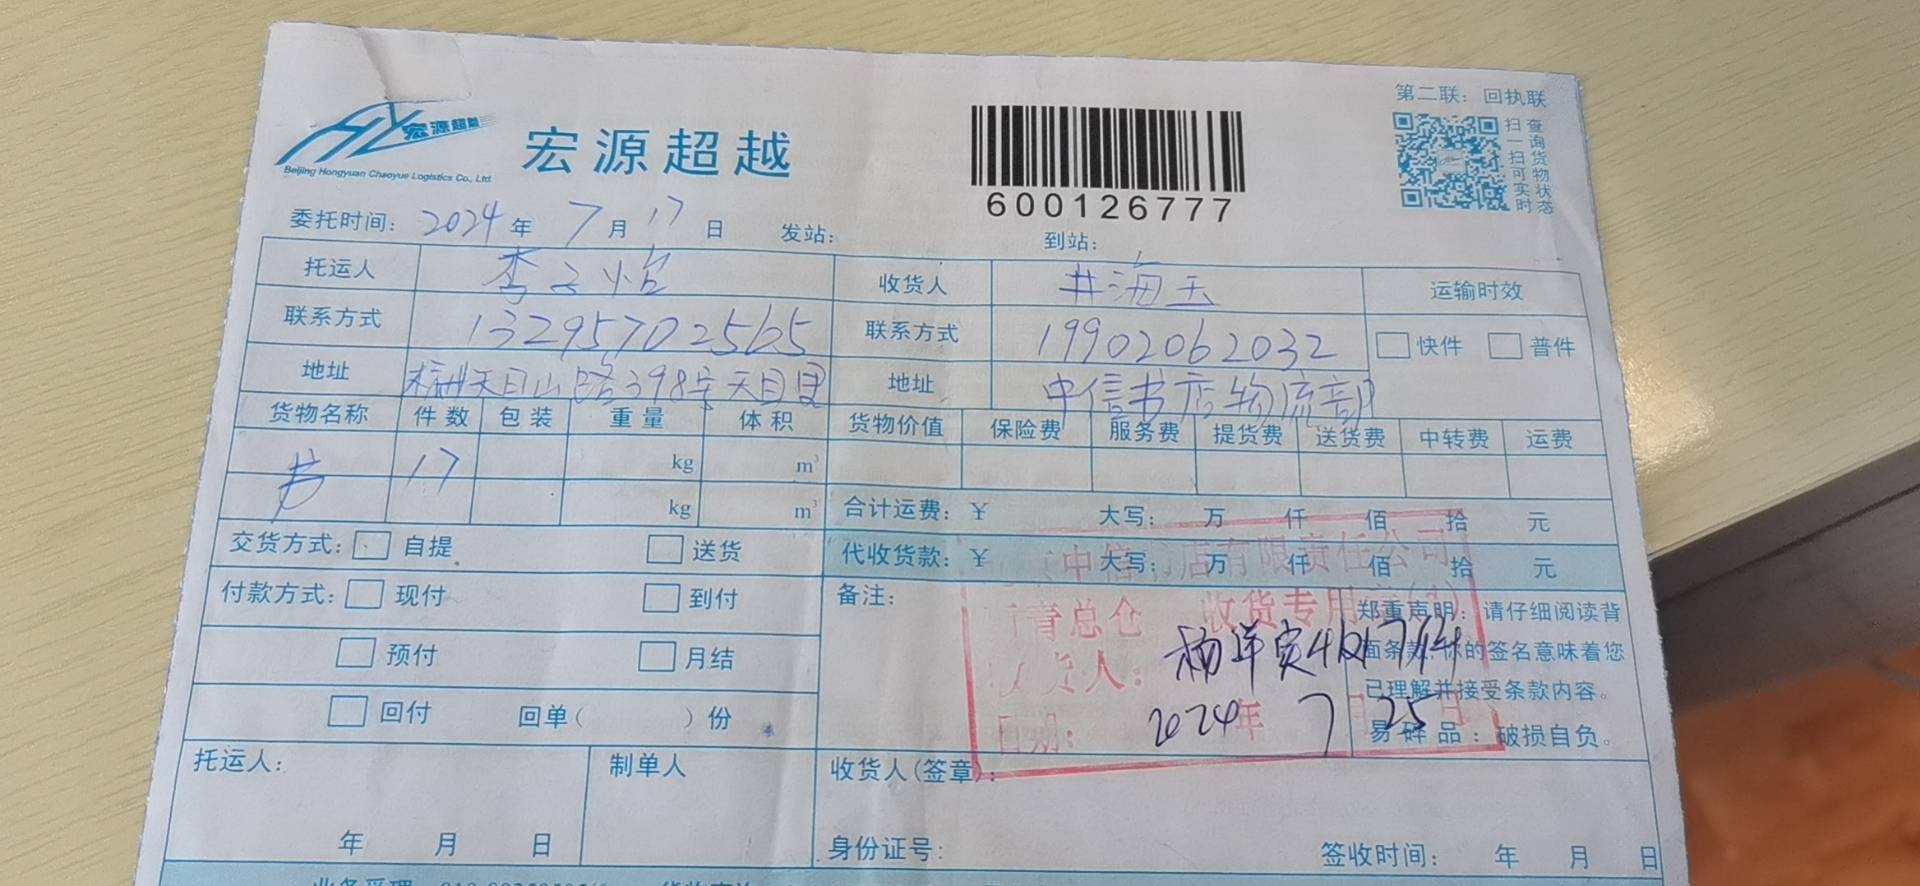 第二联：回执联
宏源超越
Beijing Hongyuan Chaoyue Logistics Co., Ltd.
宏源超越
600126777
扫一扫可实时
查询货物状态
委托时间：2024年 7月 17日 发站： 到站：
托运人 李子怡 收货人 井海玉 运输时效
联系方式 13295702565 联系方式 19902062032 快件 普件
地址 杭州天目山路398号天目里 地址 中信书店物流部
货物名称 件数 包装 重量 体积 货物价值 保险费 服务费 提货费 送货费 中转费 运费
书 17 kg m³
kg m³ 合计运费：￥ 大写： 万 仟 佰 拾 元
交货方式： 自提 送货 代收货款：￥ 大写： 万 仟 佰 拾 元
中信书店有限责任公司
付款方式： 现付 到付 备注：
青总仓 收货专用
郑重声明：请仔细阅读背
面条款，你的签名意味着您
已理解并接受条款内容。
易碎品：破损自负。
预付 月结
收货人： 实收17件
日期： 2024年 7月25日
回付 回单（ ）份
托运人： 制单人 收货人(签章)：
年 月 日 身份证号： 签收时间： 年 月 日